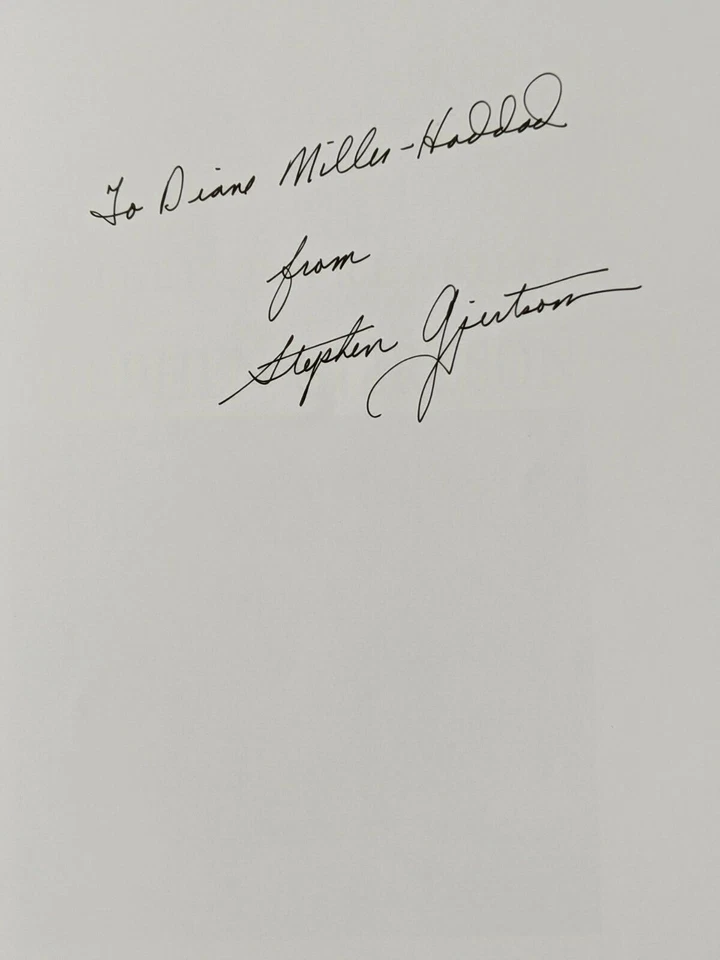 To Diane Miller-Haddad
from
Stephen Gjertson